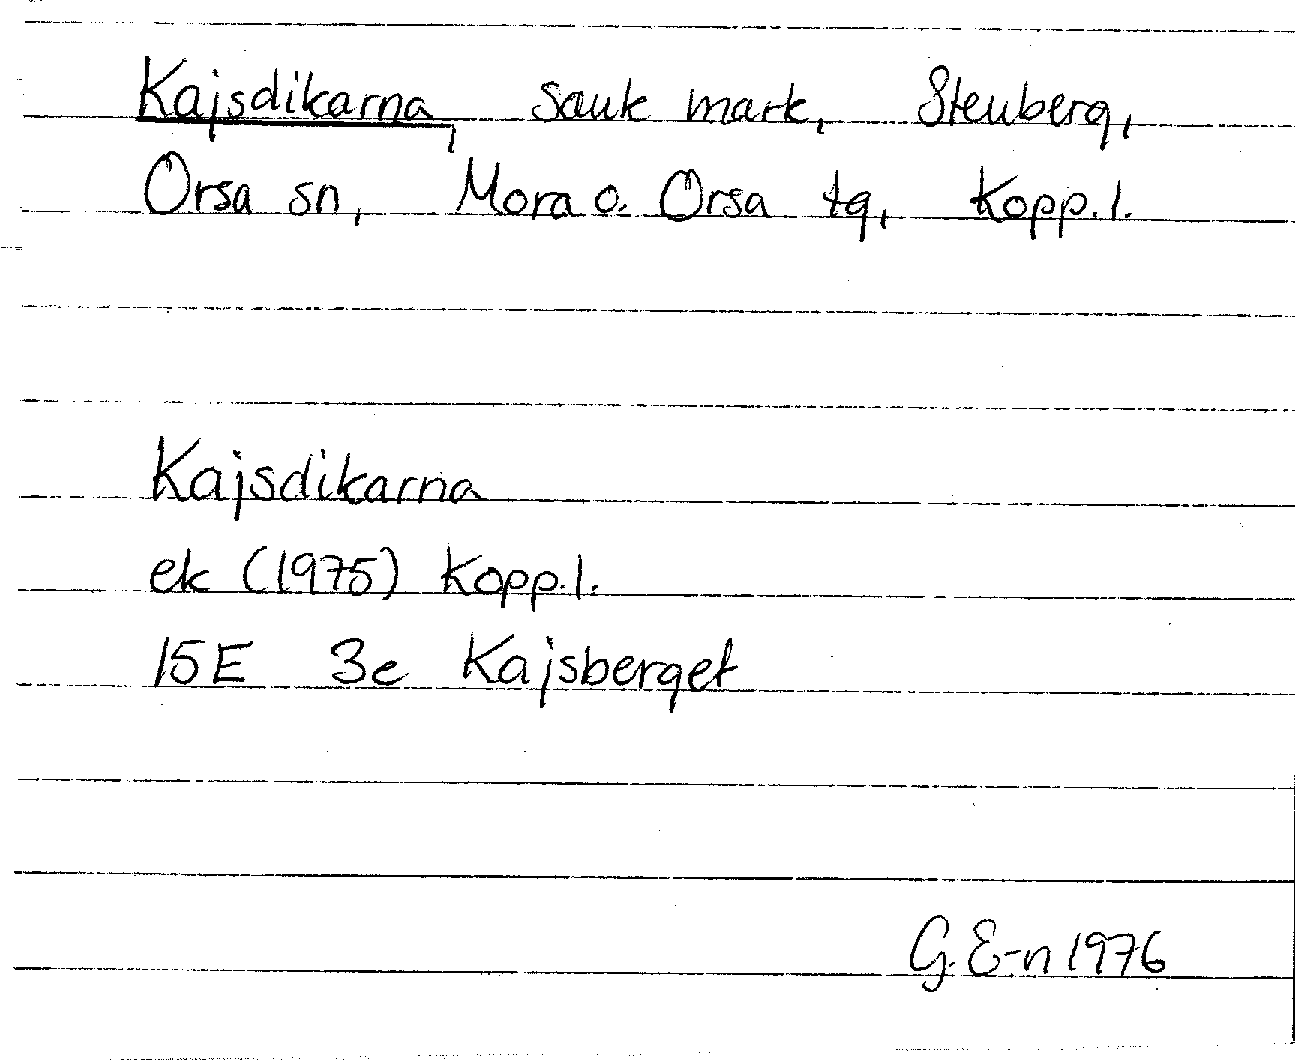 Kajsdikarna, sank mark, Stenberg,
Orsa sn, Mora o. Orsa tg, Kopp.l.
Kajsdikarna
ek (1975) Kopp.l.
15E 3e Kajsberget
G. E-n 1976